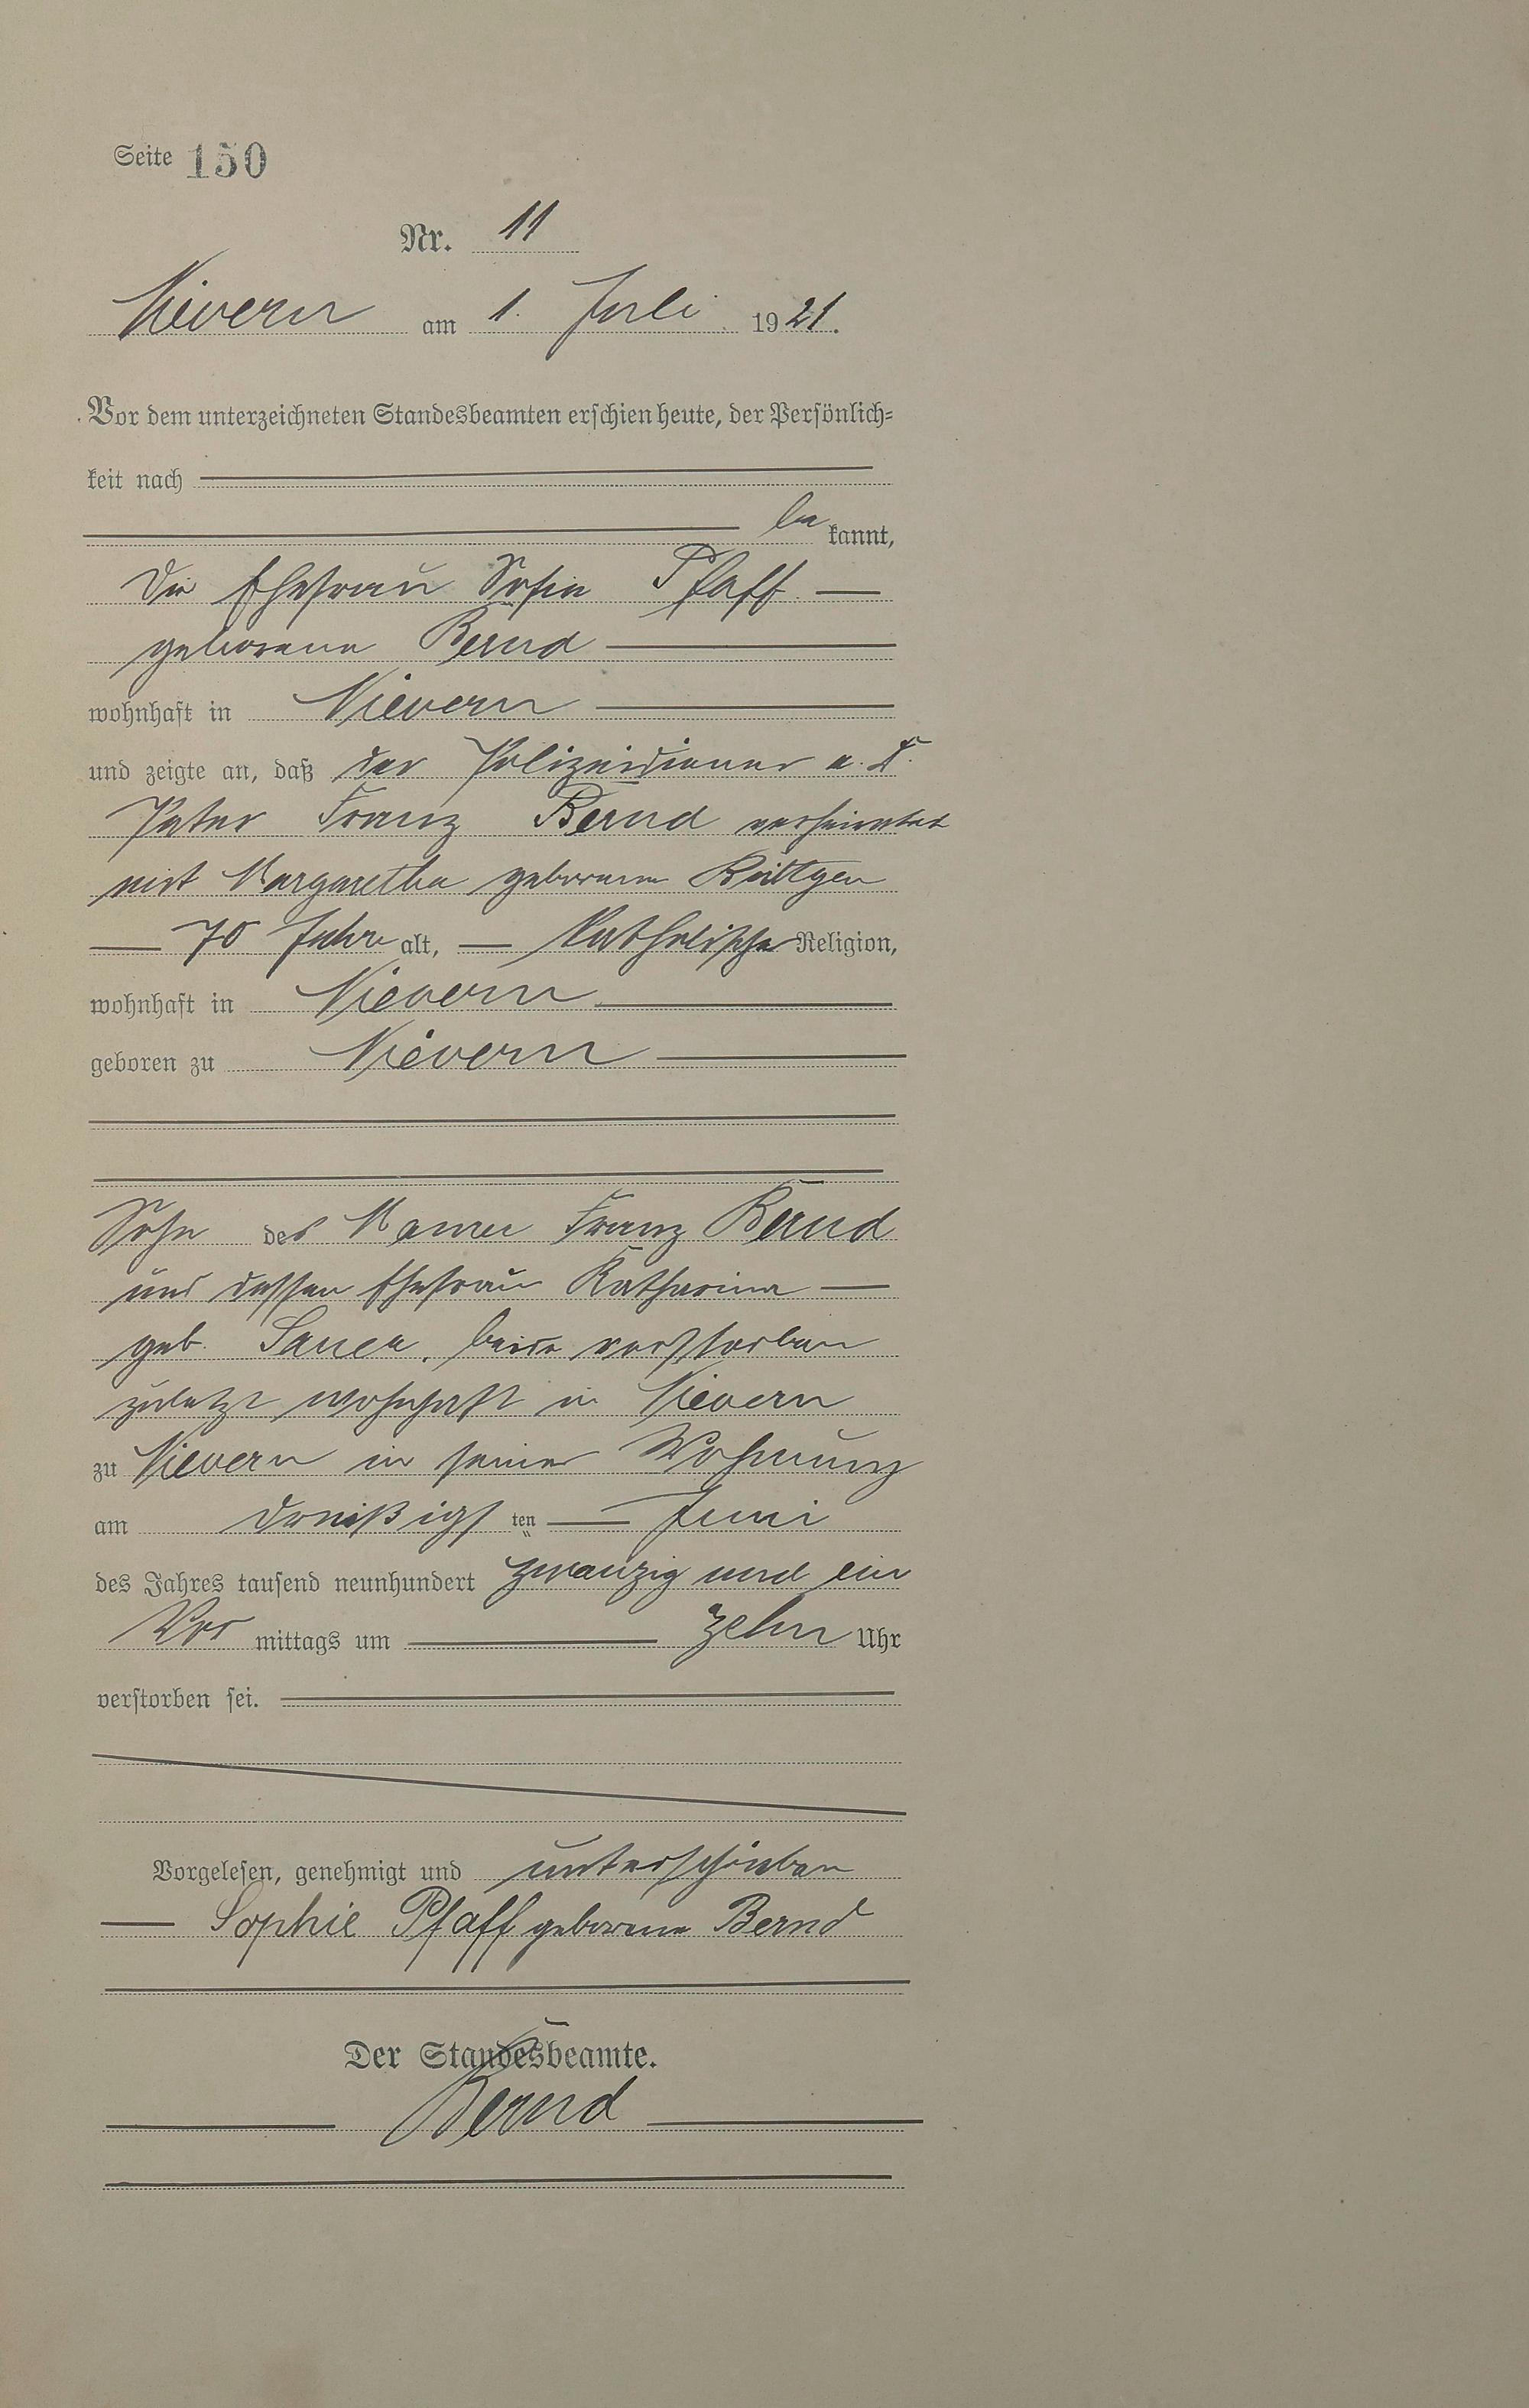 Seite 150
Nr. 11
Nievern am 1. Juli 1921.
Vor dem unterzeichneten Standesbeamten erschien heute, der Persönlich-
keit nach
be kannt,
die Ehefrau Sofie Pfaff
geborene Bernd
wohnhaft in Nievern
und zeigte an, daß der Polizeidiener a. D.
Peter Franz Bernd verheiratet
mit Margaretha geborene
70 Jahre alt, katholischer Religion,
wohnhaft in Nievern
geboren zu Nievern
Sohn des Franz Bernd
und dessen Ehefrau Katharina
geb. Sauer, beide verstorben
zuletzt wohnhaft in Nievern
zu Nievern in seiner Wohnung
am dreißigs ten Juni
des Jahres tausend neunhundert zwanzig und ein
Vor mittags um zehn Uhr
verstorben sei.
Vorgelesen, genehmigt und unterschrieben
Sophie Pfaff geborene Bernd
Der Standesbeamte.
Bernd